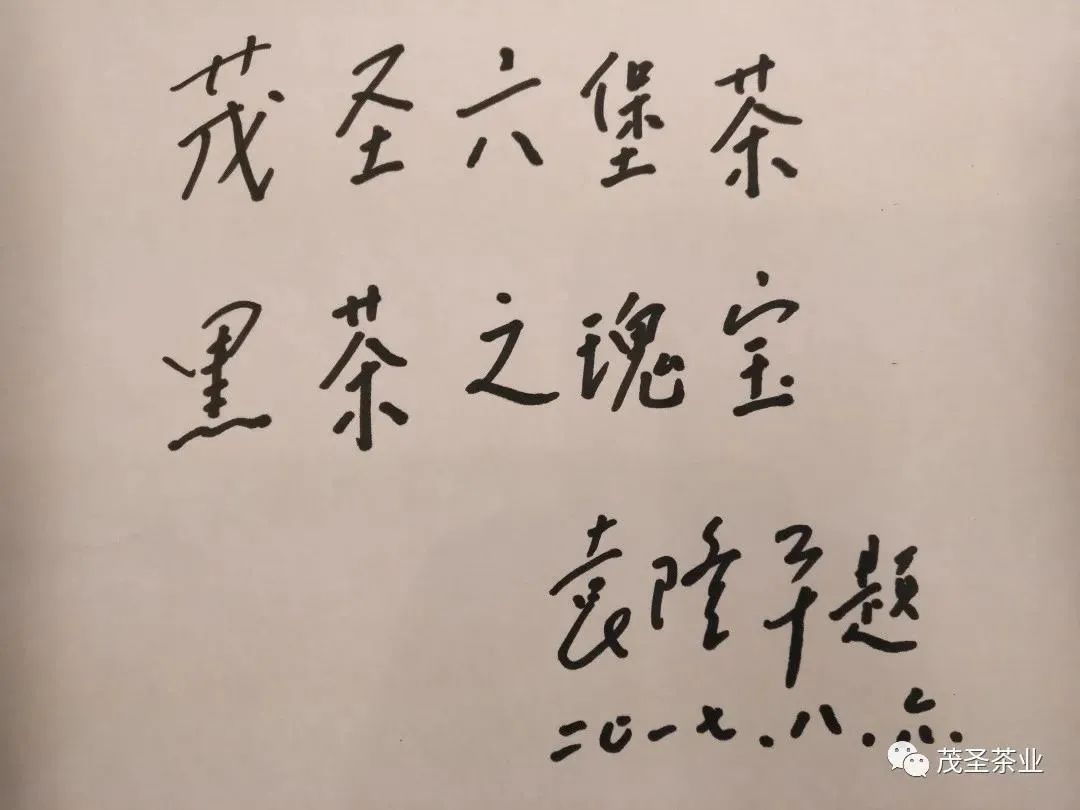 茂圣六堡茶
黑茶之瑰宝
袁隆平题
二〇一七.八.六.
茂圣茶业